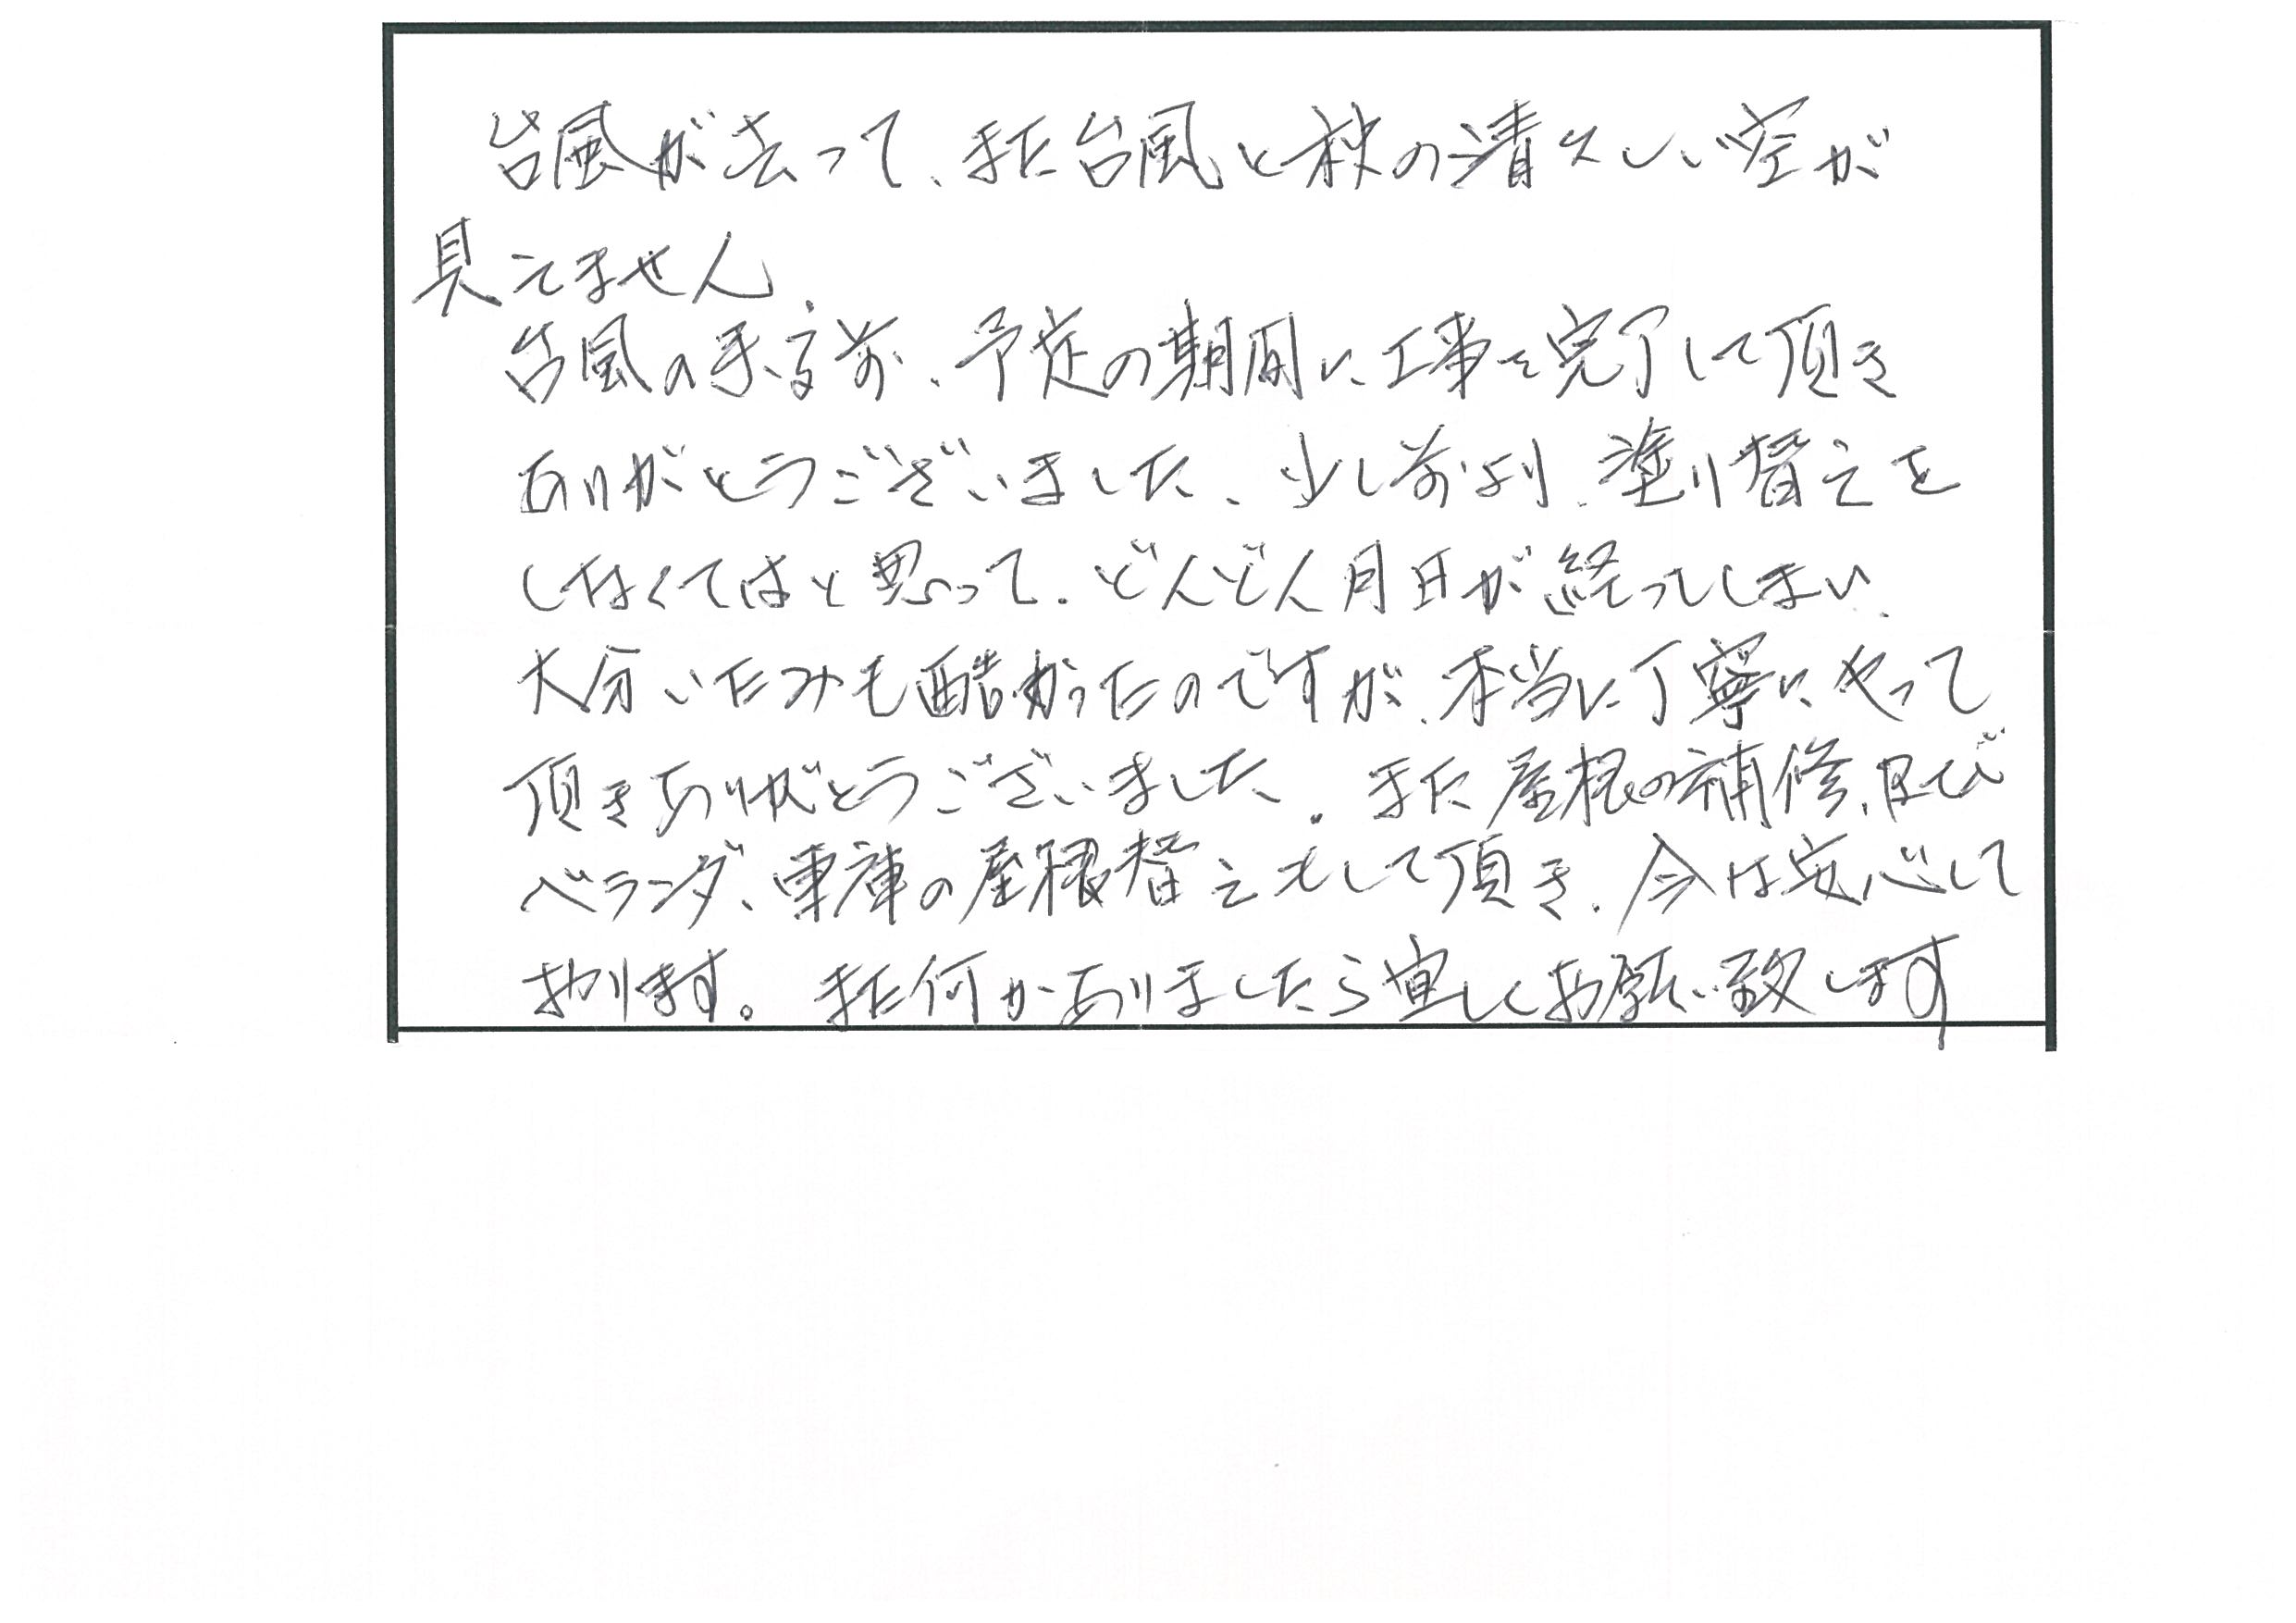 台風が去って、また台風と秋の清々しい空が
見えません
台風の来る前、予定の期間に工事を完了して頂き
ありがとうございました、少し前より、塗り替えを
しなくてはと思って、どんどん月日が経ってしまい、
大分いたみも酷かったのですが、本当に丁寧にやって
頂きありがとうございました。また屋根の補修、及び
ベランダ、車庫の屋根替えもして頂き、今は安心して
おります。また何かありましたら宜しくお願い致します